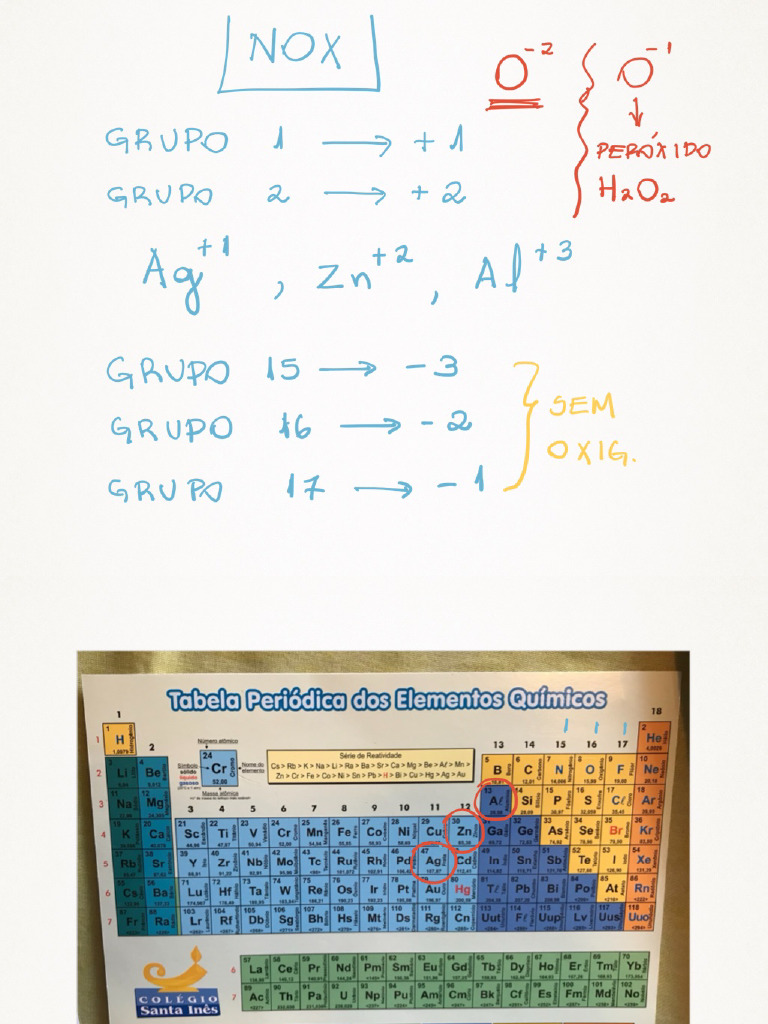 NOX
O⁻² O⁻¹
PERÓXIDO
H₂O₂
GRUPO 1 → +1
GRUPO 2 → +2
Ag⁺¹, Zn⁺², Al⁺³
GRUPO 15 → -3
GRUPO 16 → -2
GRUPO 17 → -1
SEM
OXIG.
Tabela Periódica dos Elementos Químicos
1 18
2 13 14 15 16 17
3 4 5 6 7 8 9 10 11 12
Número atômico
Símbolo
sólido
líquido
gasoso
24
Cr
52,00
Nome do
elemento
Massa atômica
Série de Reatividade
Cs > Rb > K > Na > Li > Ra > Ba > Sr > Ca > Mg > Be > Aℓ > Mn >
Zn > Cr > Fe > Co > Ni > Sn > Pb > H > Bi > Cu > Hg > Ag > Au
1 H He
2 Li Be B C N O F Ne
3 Na Mg Aℓ Si P S Cℓ Ar
4 K Ca Sc Ti V Cr Mn Fe Co Ni Cu Zn Ga Ge As Se Br Kr
5 Rb Sr Y Zr Nb Mo Tc Ru Rh Pd Ag Cd In Sn Sb Te I Xe
6 Cs Ba La Ta W Re Os Ir Pt Hg Tℓ Pb Bi Po At Rn
7 Fr Ra Lr Rf Db Sg Bh Hs Mt Ds Rg Cn Uut Fℓ Uup Lv Uus Uuo
6 La Ce Pr Nd Pm Sm Eu Gd Tb Dy Ho Er Tm Yb
7 Ac Th Pa U Np Pu Am Cm Bk Cf Es Fm Md No
COLÉGIO
Santa Inês